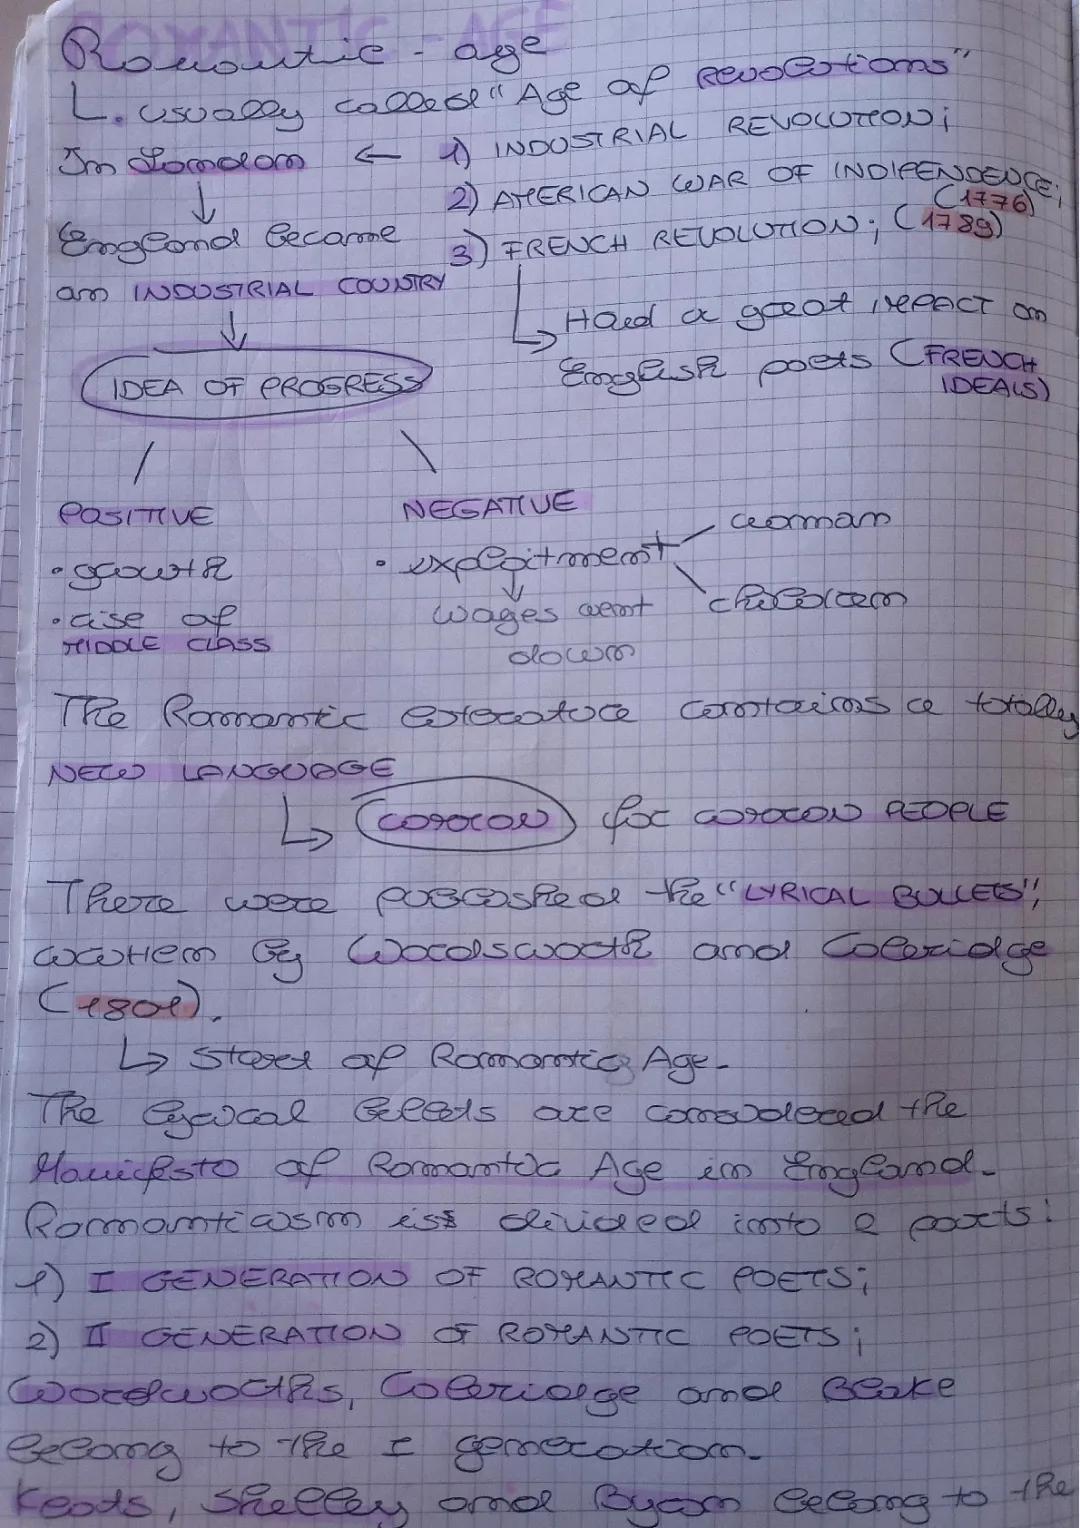 ROMANTIC - AGE
Romantic - age
usually called "Age of Revolutions"
In London ← 1) INDUSTRIAL REVOLUTION;
2) AMERICAN WAR OF INDIPENDENCE;
(1776)
England became
3) FRENCH REVOLUTION; (1789)
an INDUSTRIAL COUNTRY
Had a great IMPACT on
English poets (FRENCH
IDEALS)
IDEA OF PROGRESS
POSITIVE
NEGATIVE
• growth
• rise of
MIDDLE CLASS
• exploitment
woman
children
wages went
down
The Romantic literature contains a totally
NEW LANGUAGE
COMMON for COMMON PEOPLE
There were published the "LYRICAL BULLETS",
written by Wordsworth and Coleridge
(1801).
↳ Start of Romantic Age.
The lyrical ballads are considered the
Manifesto of Romantic Age in England.
Romanticism is divided into 2 parts:
1) I GENERATION OF ROMANTIC POETS;
2) II GENERATION OF ROMANTIC POETS;
Wordsworths, Coleridge and Blake
belong to the I generation.
Keats, Shelley and Byron belong to the